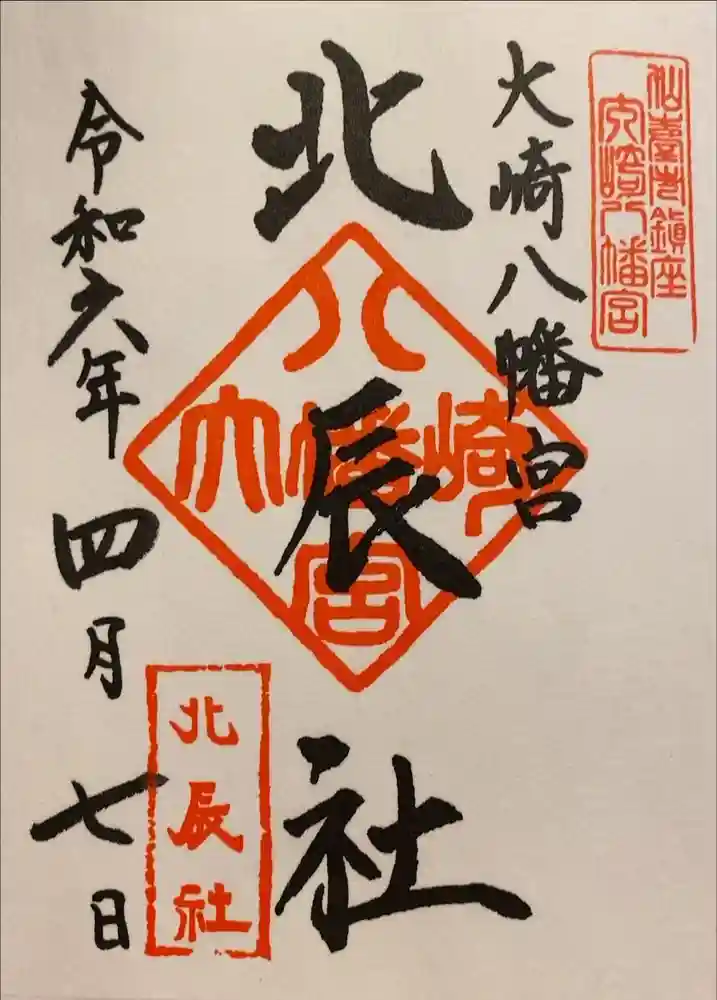 仙臺市鎮座
大崎八幡宮
大崎八幡宮
北辰社
八
大幡崎
宮
令和六年四月七日
北辰社